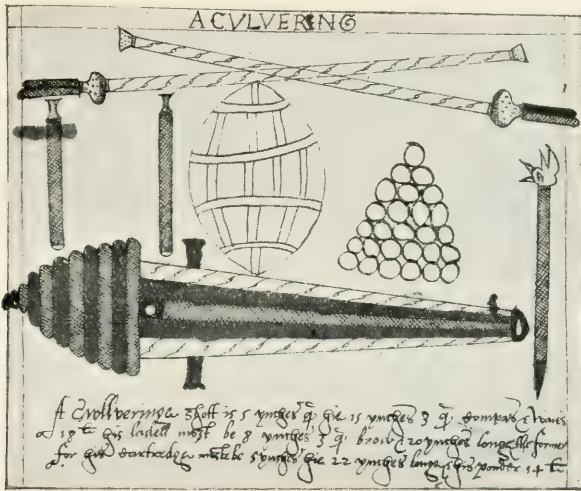 A CVLVERING
A Cullveringe shott is 5 ynches q̃ hie 15 ynches 3 q̃ Compas &
18 his ladell must be 8 ynches 3 q̃ brow 20 ynches longe the former
for his Cartredge must be 5 ynches hie 22 ynches longe his powder 14